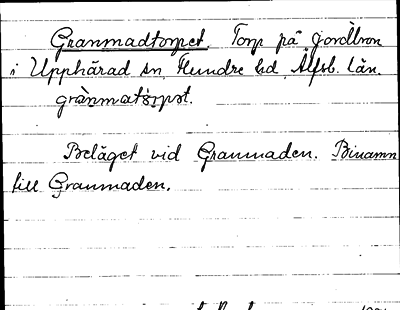 Granmadtorpet. Torp på Jordbron
i Upphärad sn, Flundre hd Älfsb. län.
grànmatòrpət.
Beläget vid Granmaden. Binamn
till Granmaden.